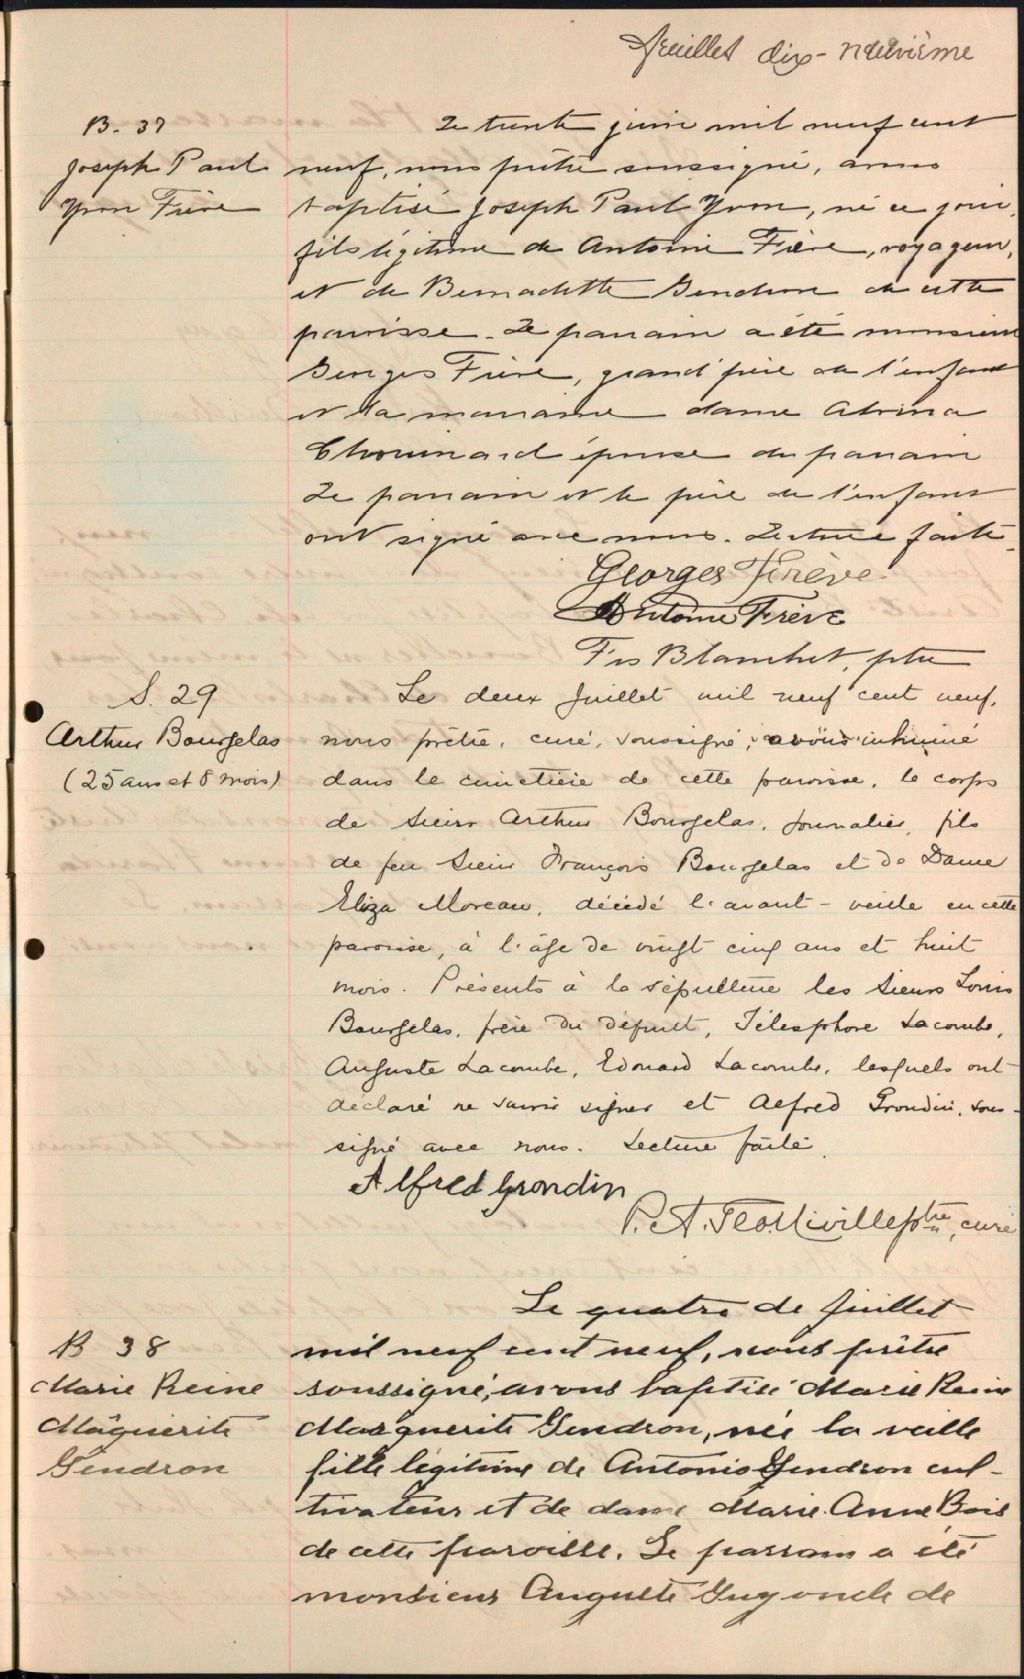 feuillet dix-neuvième
B. 37
Joseph Paul
Yvon Frève
Le trente juin mil neuf cent
neuf, nous prêtre soussigné, avons
baptisé Joseph Paul Yvon, né ce jour,
fils légitime de Antoine Frève, voyageur,
et de Bernadette Gendron de cette
paroisse. Le parrain a été monsieur
Georges Frève, grand'père de l'enfant
et la marraine dame
Chouinard épouse du parrain
Le parrain et le père de l'enfant
ont signé avec nous. Lecture faite.
Georges Frève
Antoine Frève
Frs Blanchet, ptre
S. 29
Arthur Bourgelas
(25 ans et 8 mois)
Le deux Juillet mil neuf cent neuf,
nous prêtre, curé, soussigné, avons inhumé
dans le cimetière de cette paroisse, le corps
de Sieur Arthur Bourgelas, journalier, fils
de feu Sieur François Bourgelas et de Dame
Eliza Moreau, décédé l'avant-veille en cette
paroisse, à l'âge de vingt cinq ans et huit
mois. Présents à la sépulture les Sieurs Louis
Bourgelas, frère du défunt, Télesphore Lacombe,
Auguste Lacombe, Edouard Lacombe, lesquels ont
déclaré ne savoir signer et Alfred Grondin, sous-
signé avec nous. Lecture faite.
Alfred Grondin
P. A. ptre, curé
B 38
Marie Reine
Maguerite
Gendron
Le quatre de juillet
mil neuf cent neuf, nous prêtre
soussigné, avons baptisé Marie Reine
Marguerite Gendron, née la veille
fille légitime de Antonio Gendron cul-
tivateur et de dame Marie Anne Bois
de cette paroisse. Le parrain a été
monsieur Auguste Guy oncle de